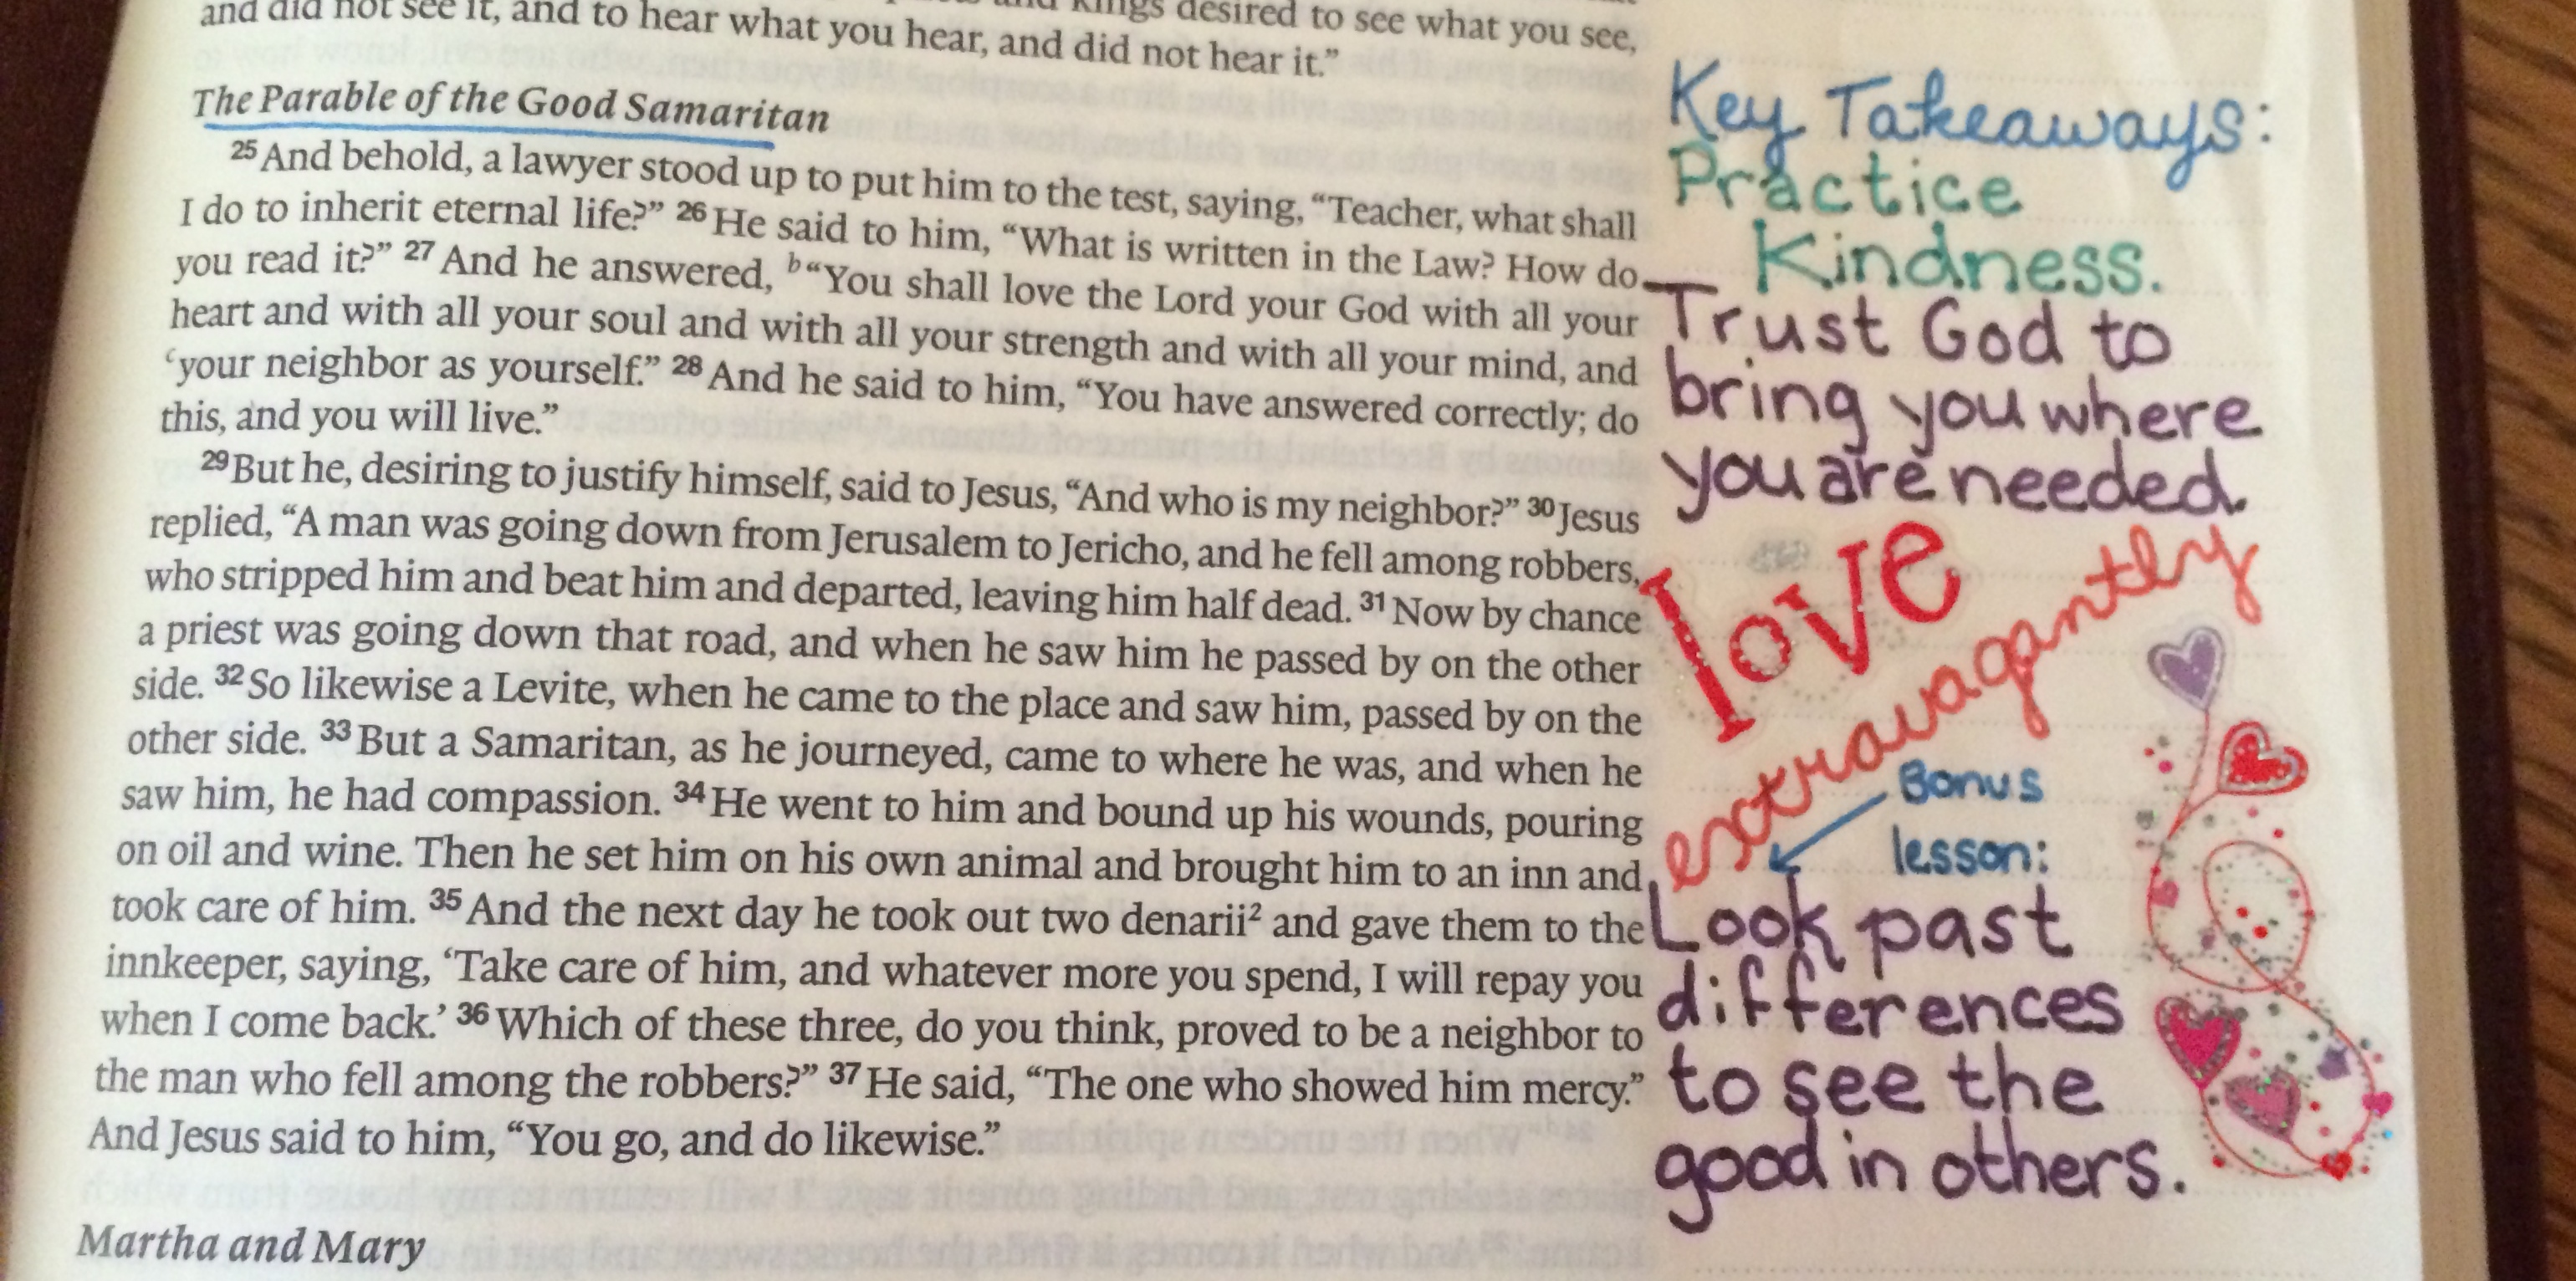 and did not see it, and to hear what you hear, and did not hear it.”
kings desired to see what you see,
The Parable of the Good Samaritan
25 And behold, a lawyer stood up to put him to the test, saying, “Teacher, what shall
I do to inherit eternal life?” 26 He said to him, “What is written in the Law? How do
you read it?” 27 And he answered, b “You shall love the Lord your God with all your
heart and with all your soul and with all your strength and with all your mind, and
‘your neighbor as yourself.” 28 And he said to him, “You have answered correctly; do
this, and you will live.”
29 But he, desiring to justify himself, said to Jesus, “And who is my neighbor?” 30 Jesus
replied, “A man was going down from Jerusalem to Jericho, and he fell among robbers,
who stripped him and beat him and departed, leaving him half dead. 31 Now by chance
a priest was going down that road, and when he saw him he passed by on the other
side. 32 So likewise a Levite, when he came to the place and saw him, passed by on the
other side. 33 But a Samaritan, as he journeyed, came to where he was, and when he
saw him, he had compassion. 34 He went to him and bound up his wounds, pouring
on oil and wine. Then he set him on his own animal and brought him to an inn and
took care of him. 35 And the next day he took out two denarii2 and gave them to the
innkeeper, saying, ‘Take care of him, and whatever more you spend, I will repay you
when I come back.’ 36 Which of these three, do you think, proved to be a neighbor to
the man who fell among the robbers?” 37 He said, “The one who showed him mercy.”
And Jesus said to him, “You go, and do likewise.”
Martha and Mary
Key Takeaways:
Practice
Kindness.
Trust God to
bring you where
you are needed.
love
extravagantly
Bonus
lesson:
Look past
differences
to see the
good in others.